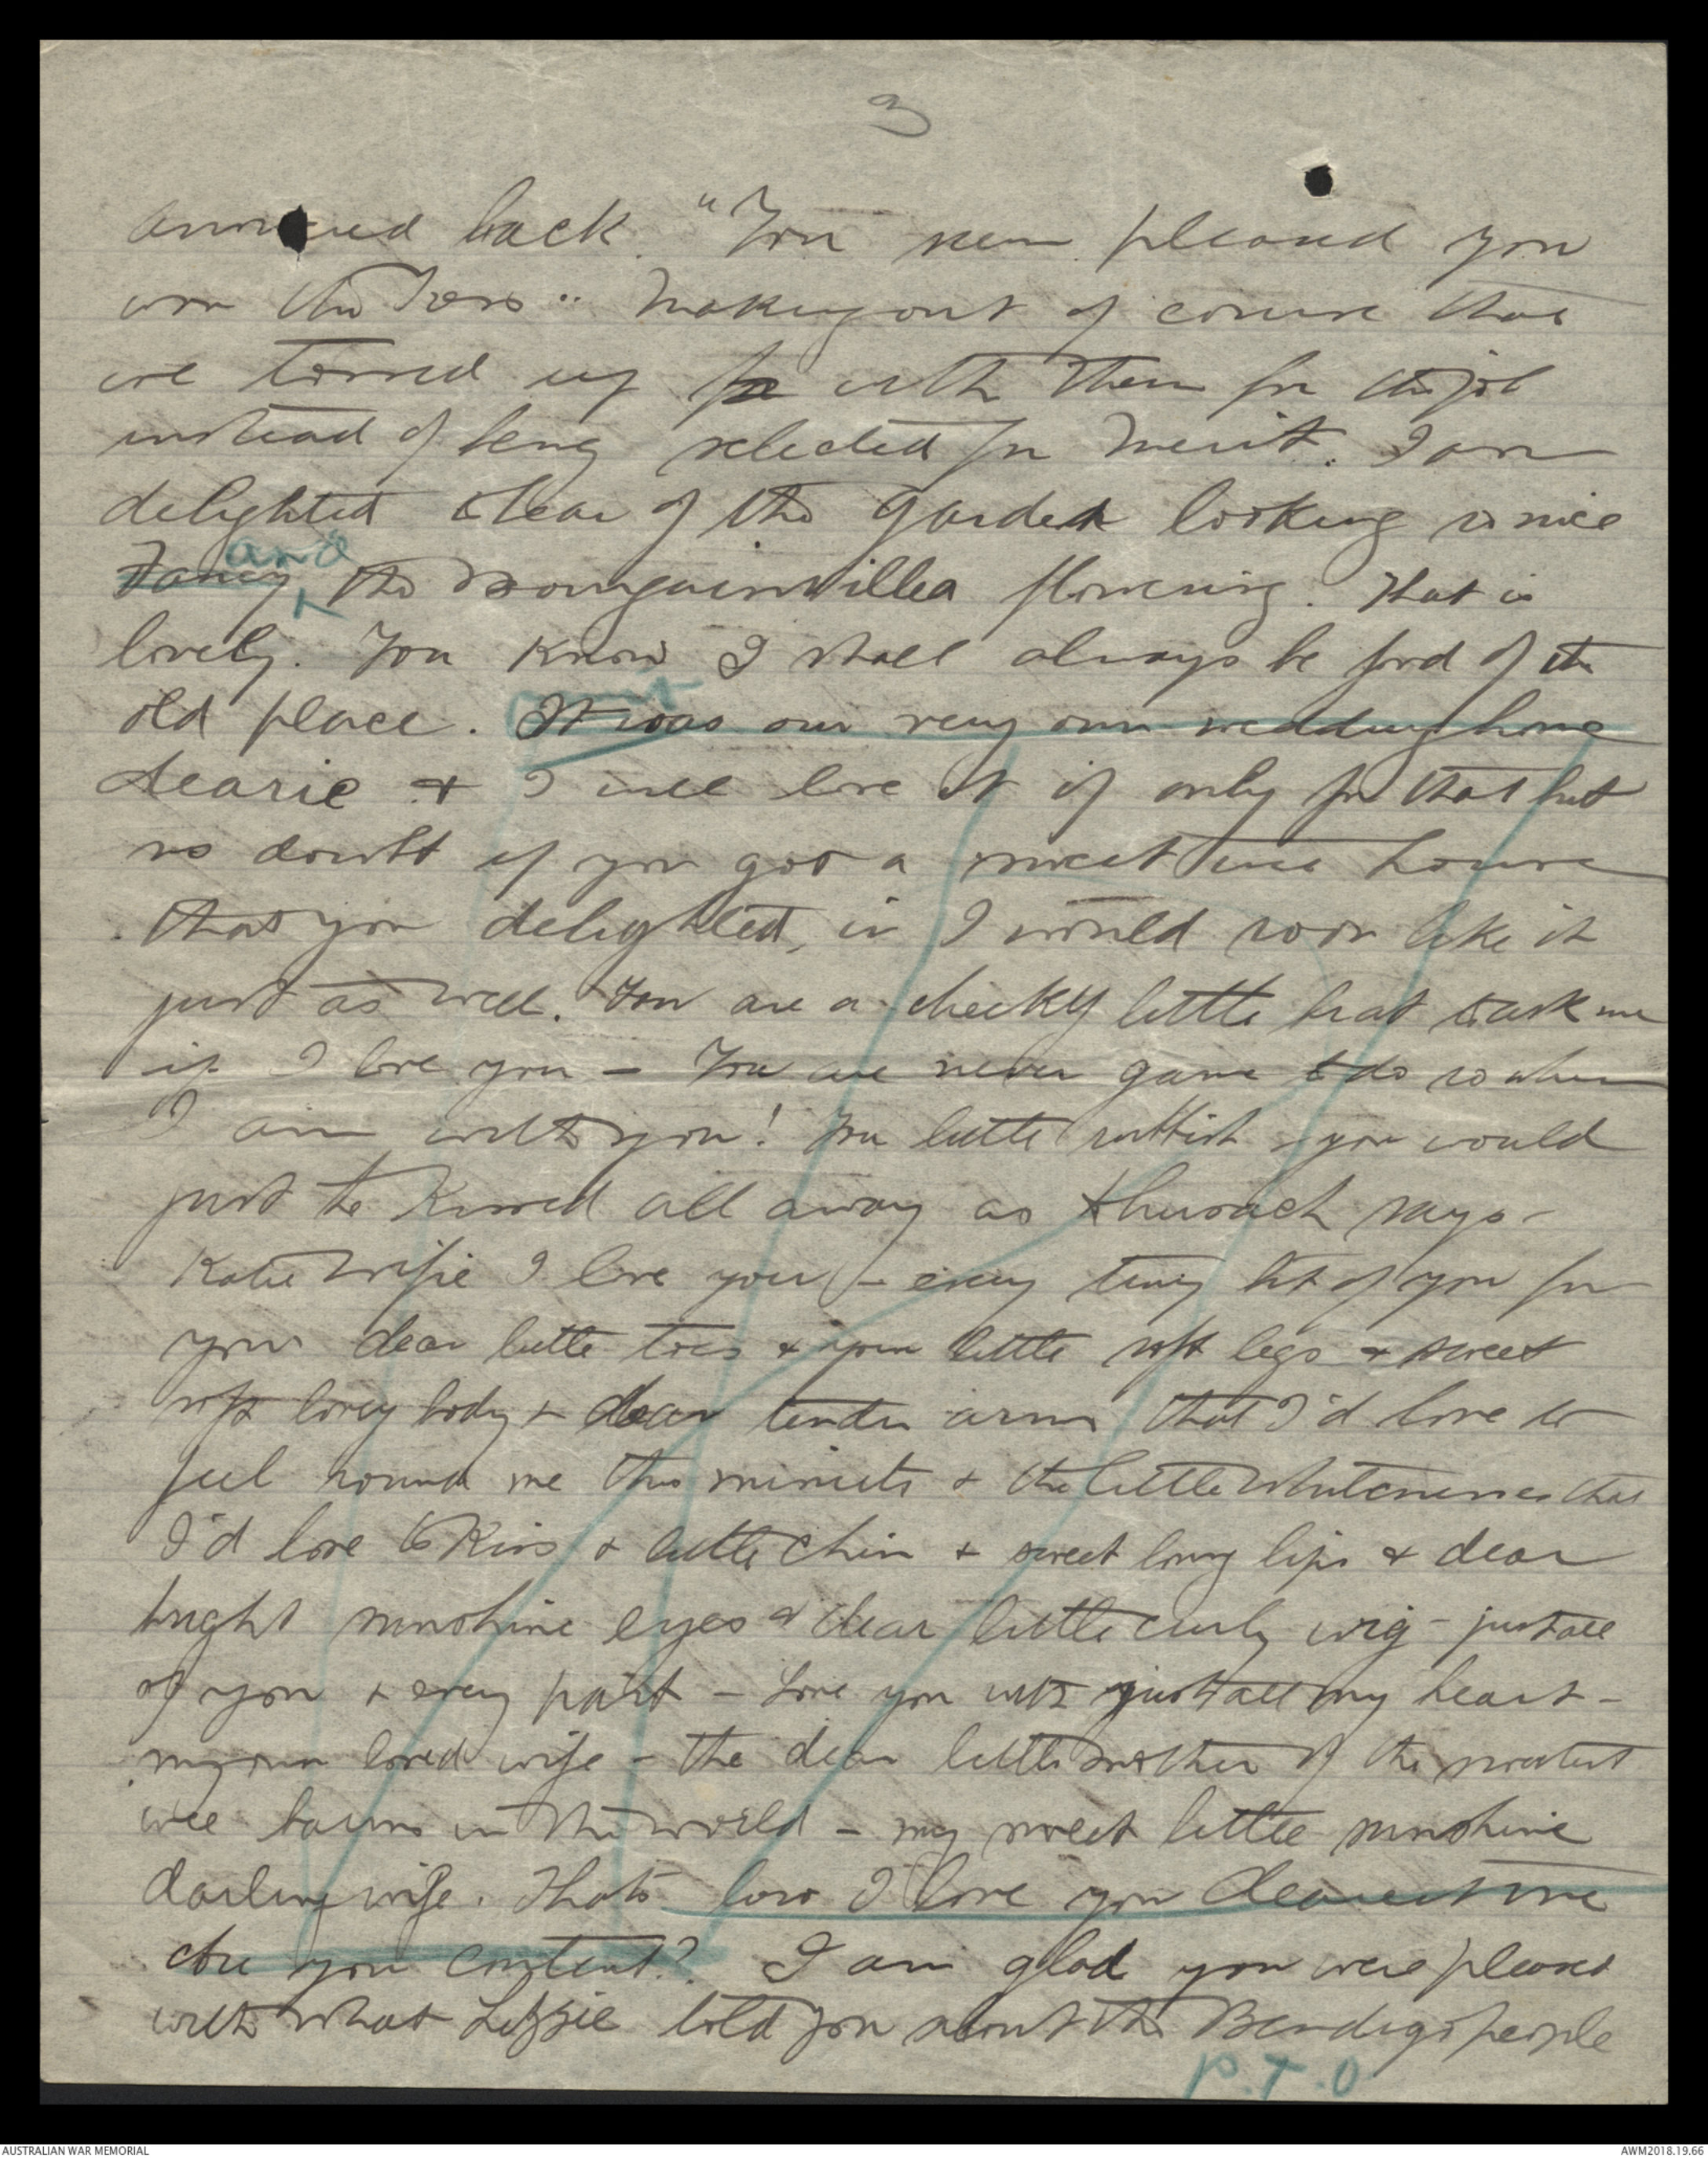 3
answered back. "You seem pleased you
won the Toss" Making out of course that
we tossed up with them for the job
instead of being selected for Merit. I am
delighted to hear of the garden looking so nice
Fancy and the Bougainvillea flowering. That is
lovely. You know I shall always be fond of the
old place. It was our very own wedding home
dearie & I will love it if only for that but
no doubt if you got a sweet wee house
that you delighted in I would soon like it
just as well. You are a cheeky little brat to ask me
if I love you – You are never game to do so when
I am with you! You little rubbish you would
just be kissed all away as says –
Katie Wifie I love you – every tiny bit of you for
your dear little toes & your little soft legs & sweet
soft lovey body & dear tender arms that I'd love to
feel round me this minute & the little whitenesses that
I'd love to Kiss & little chin & sweet loving lips & dear
bright sunshine eyes & dear little curly wig – just all
of you & every part – Love you with just all my heart –
my own loved wife – the dear little mother of the sweetest
wee bairns in the world – my sweet little sunshine
darling wife. Thats how I love you dearest one
are you content? I am glad you were pleased
with what Lizzie told you about the Bendigo people
P.T.O
AUSTRALIAN WAR MEMORIAL
AWM2018.19.66